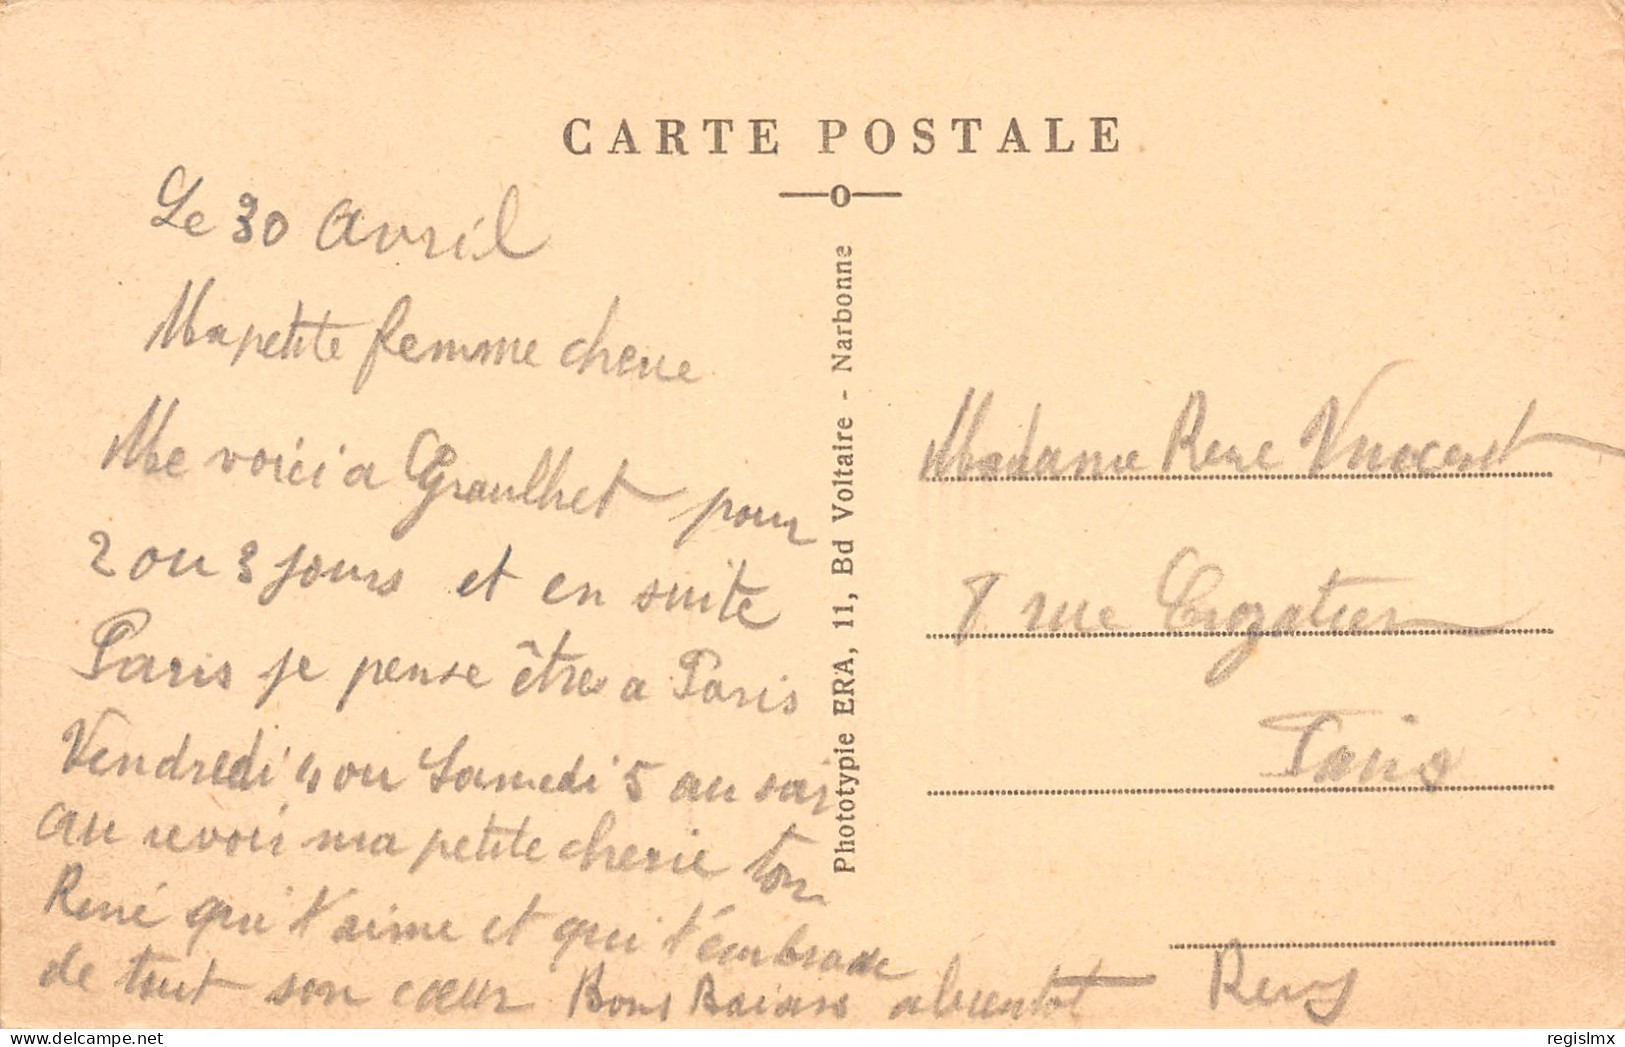 CARTE POSTALE
Le 30 Avril
Ma petite femme cherie
Me voici a Graulhet pour
2 ou 3 jours et en suite
Paris je pense êtres a Paris
Vendredi 4 ou Samedi 5 au soir
au revoir ma petite cherie ton
René qui t'aime et qui t'embrasse
de tout son cœur Bons Baisers a bientot René
Phototypie ERA, 11, Bd Voltaire - Narbonne
Madame Rene Vincent
8 rue Crozatier
Paris
regislmx